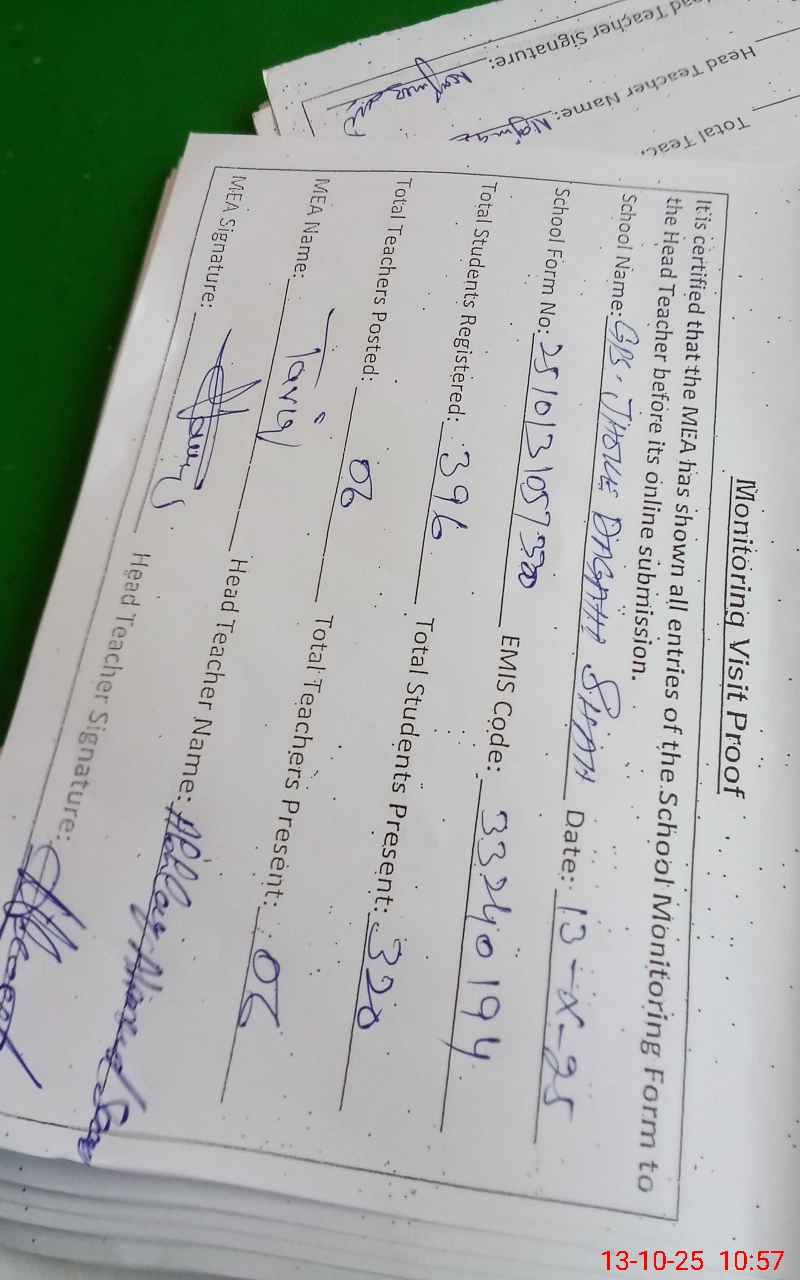 Monitoring Visit Proof
It is certified that the MEA has shown all entries of the School Monitoring Form to
the Head Teacher before its online submission.
School Name: GBS. JHOLE DARGAHI SHAH Date: 13-X-25
School Form No: 2510131057320 EMIS Code: 33240194
Total Students Registered: 396 Total Students Present: 320
Total Teachers Posted: 06 Total Teachers Present: 06
MEA Name: Tariq Head Teacher Name: Ahmed
MEA Signature: Head Teacher Signature:
Total Teac
Head Teacher Name: Najma
ad Teacher Signature:
13-10-25 10:57